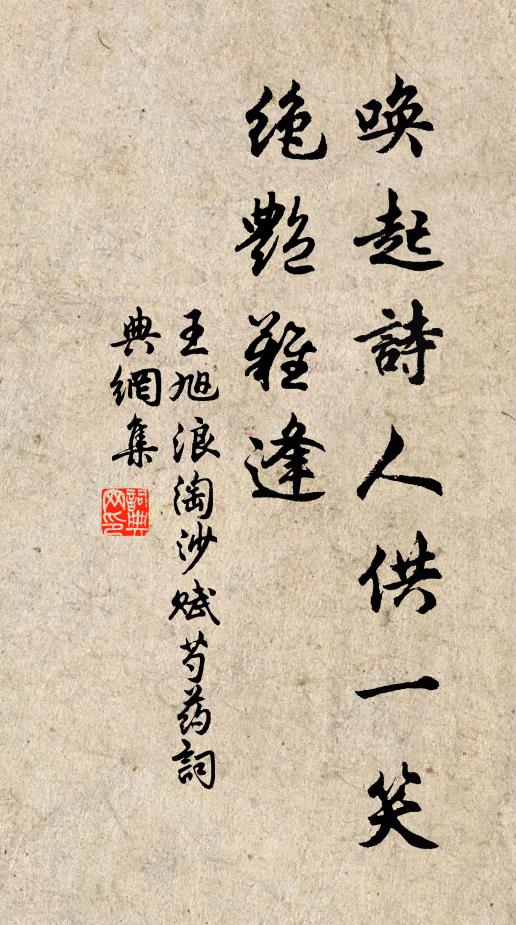 唤起詩人供一笑
绝艷難逢
王旭浪淘沙赋芍药詞
典網集
詞典网印